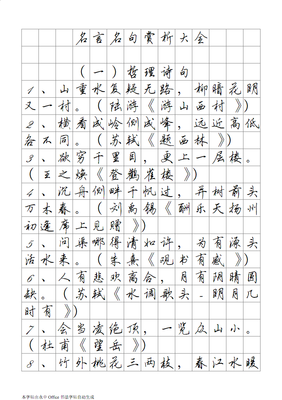 名言名句赏析大全
（一）哲理诗句
1、山重水复疑无路，柳暗花明
又一村。（陆游《游山西村》）
2、横看成岭侧成峰，远近高低
各不同。（苏轼《题西林》）
3、欲穷千里目，更上一层楼。
（王之焕《登鹳雀楼》）
4、沉舟侧畔千帆过，并树前头
万木春。（刘禹锡《酬乐天扬州
初逢席上见赠》）
5、问渠哪得清如许，为有源头
活水来。（朱熹《观书有感》）
6、人有悲欢离合，月有阴晴圆
缺。（苏轼《水调歌头-明月几
时有》）
7、会当凌绝顶，一览众山小。
（杜甫《望岳》）
8、竹外桃花三两枝，春江水暖